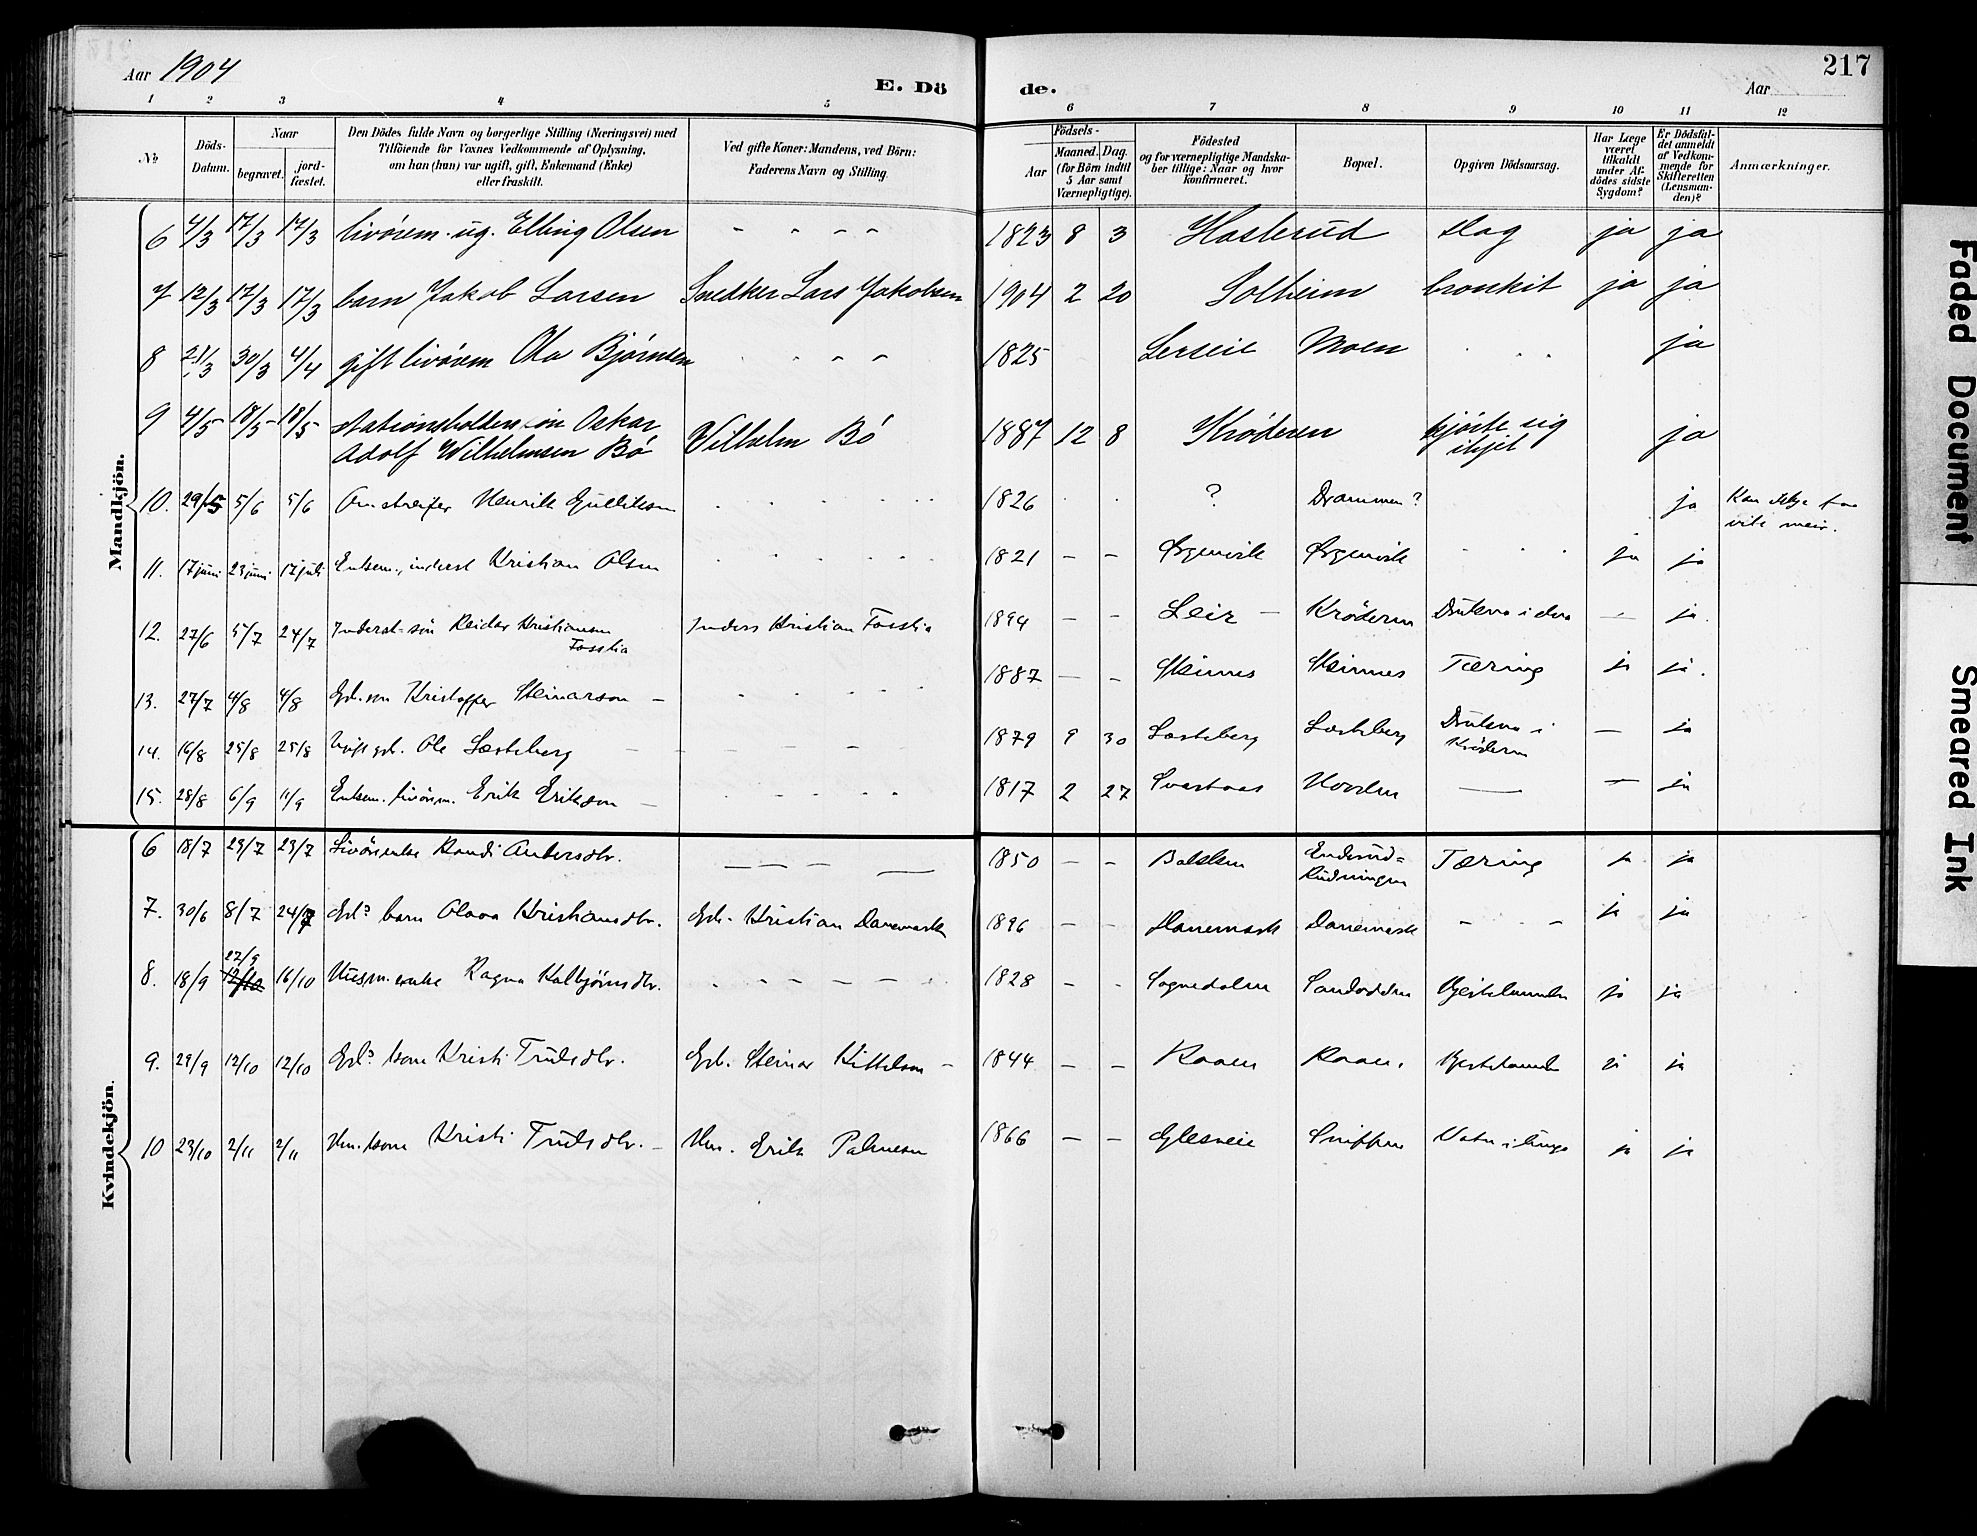 Aar 1904
E. Dö
de.
217
Aar
1 2 3 4 5 6 7 8 9 10 11 12
No
Döds-
Datum.
Naar
begravet.
jord-
fæstet.
Den Dödes fulde Navn og borgerlige Stilling (Næringsvei) med
Tilföiende for Voxnes Vedkommende af Oplysning,
om han (hun) var ugift, gift, Enkemand (Enke)
eller fraskilt.
Ved gifte Koner: Mandens, ved Börn:
Faderens Navn og Stilling.
Födsels-
Aar
Maaned. Dag.
(for Börn indtil
5 Aar samt
Værnepligtige).
Födested
og for værnepligtige Mandska-
ber tillige: Naar og hvor
konfirmeret.
Bopæl.
Opgiven Dödsaarsag.
Har Læge
været
tilkaldt
under Af-
dödes sidste
Sygdom?
Er Dödsfal-
det anmeldt
af Vedkom-
mende for
Skifteretten
(Lensman-
den)?
Anmærkninger.
Mandkjön.
6 4/3 17/3 17/3 livörem. ug. Elling Olsen - - - - 1823 8 3 Hasterud slag ja ja
7 12/3 17/3 17/3 barn Jakob Larsen Snedker Lars Jakobsen 1904 2 20 Solheim bronkit ja ja
8 21/3 30/3 4/4 gift livörem Ola Björnsen 1825 Lerseie Moen ja
9 4/5 18/5 18/5 Stationsholdersön Oskar
Adolf Wilhelmsen Bö Vilhelm Bö 1887 12 8 Kröderen kjörte sig
ihjel ja
10. 29/5 5/6 5/6 Omstreifer Henrik Gulliksen 1826 ? Drammen? ja Kan ikkje faa
vite meir.
11. 17 juni 23 juni 17 juli Enkem., inderst Kristian Olsen 1821 - - Ørgenvik Ørgenvik ja ja
12. 27/6 5/7 24/7 Inderst-sön Reidar Kristiansen
Fosslia Inders Kristian Fosslia 1894 - Leir - Kröderen Drukna i elva — ja.
13. 27/7 4/8 4/8 Gb. sön Kristoffer Steinarson - 1887 - - Steinnes Steinnes Tæring ja ja.
14. 16/8 25/8 25/8 Ugift gb. Ole Lastsberg 1879 9 30 Lastsberg Lastsberg Drukna i
Kröderen — ja
15. 28/8 6/9 11/9 Enkem. livörm. Erik Erikson - 1817 2 27 Svartaas — — ja
Kvindekjön.
6 18/7 23/7 23/7 Livörenke Randi Andersdtr. — — — 1850 - - Endrud=
Rudningen Tæring ja ja
7. 30/6 8/7 24/7 Gb? barn Olava Kristiansdtr. Gb. Kristian Danemark 1896 - - Danemark Danemark - - - ja ja
8. 18/9 27/9 12/10 16/10 Husm.enke Ragna Kolbjörnsdtr. 1828 - - Sognedalen Sandodden ja ja
9. 29/9 12/10 12/10 Gb? kone Kristi Trulsdtr. Gb. Steinar Kittelson - 1844 - - Raaen Raaen ja ja
10 23/10 2/11 2/11 Hm. kone Kristi Trulsdtr. - Hm. Erik Palmesen 1866 - - Glesneie Sniffen Vatn i lunga ja ja
Faded Document
Smeared Ink